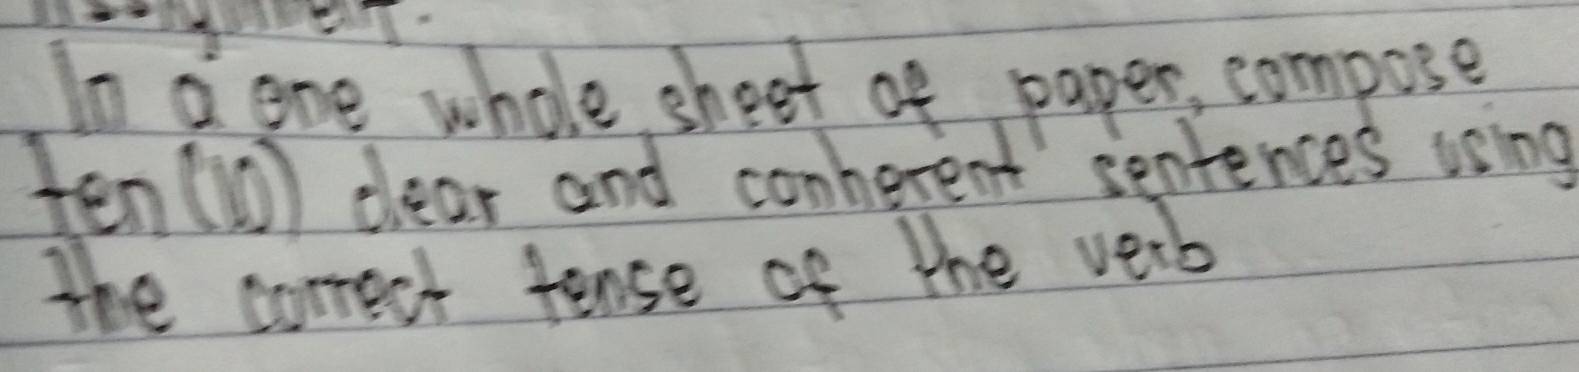 Assignment.
In a one whole sheet of paper, compose
ten (10) clear and conherent sentences using
the correct tense of the verb